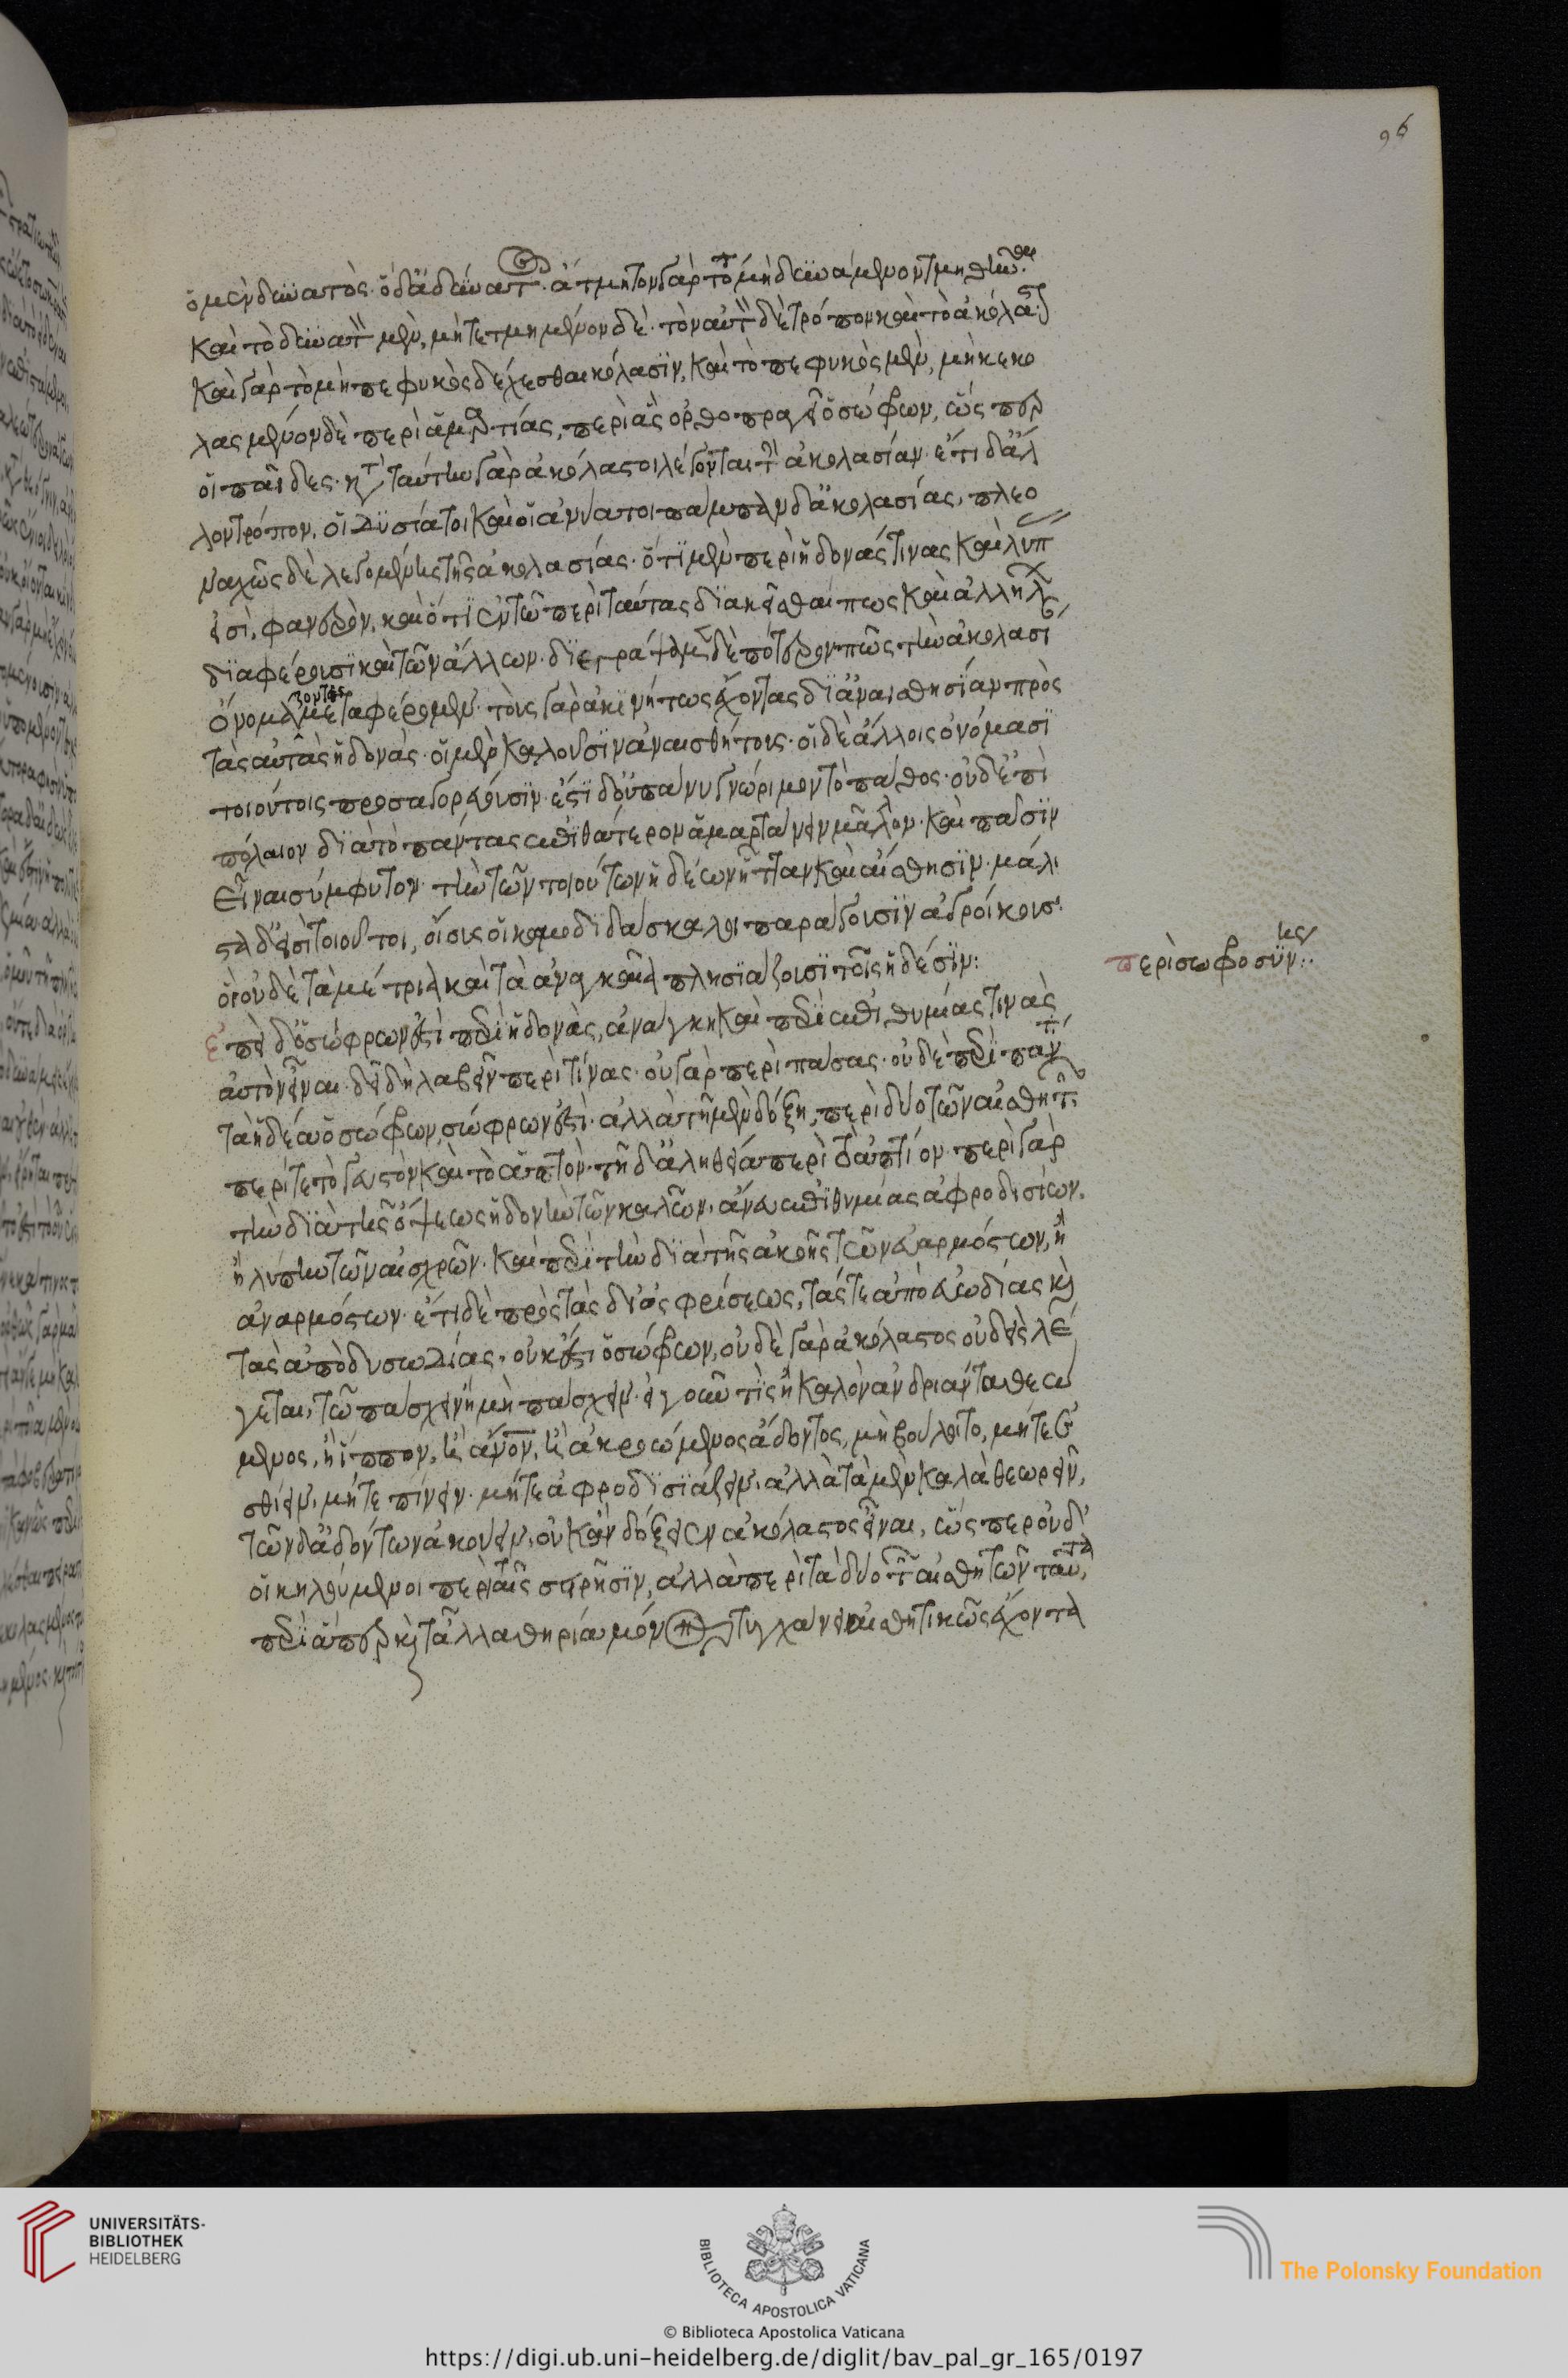 ὁ μὲν δυνατὸς· ὁ δ' ἀδύνατος. ἄτμητον γὰρ τό τε μὴ δυνάμενον τμηθῆναι
καὶ τὸ δυνατὸν μὲν, μὴ τετμημένον δὲ. τὸν αὐτὸν δὲ τρόπον καὶ τὸ ἀκόλαστον
καὶ γὰρ τὸ μὴ πεφυκὸς δέχεσθαι κόλασϊν, καὶ τὸ πεφυκὸς μὲν, μὴ κεκο
λασμένον δὲ περὶ ἁμαρτίας, περὶ ἃς ὀρθοπραγεῖ ὁ σώφρων, ὥσπερ
οἱ παῖδες. κατὰ ταύτην γὰρ ἀκόλαστοι λέγονται τὴν ἀκολασίαν. ἔτι δ' ἄλ
λον τρόπον, οἱ δϋσίατοι καὶ οἱ ἀνίατοι πάμπαν δι' ἀκολασίας. πλεο
ναχῶς δὲ λεγομένης τῆς ἀκολασίας. ὅτϊ μὲν περὶ ἡδονάς τινας καὶ λύπας
εἰσὶ, φανερὸν, καὶ ὅτϊ ἐν τῶ περὶ ταύτας δϊακεῖσθαί πως καὶ ἀλλήλων
δϊαφέρουσϊ καὶ τῶν ἄλλων. δϊεγράψαμεν δὲ πότερον πῶς τὴν ἀκολασί
ὀνομάζοντες μεταφέρομεν. τοὺς γὰρ ἀκϊνήτως ἔχοντας δϊ' ἀναισθησίαν πρὸς
τὰς αὐτὰς ἡδονὰς. οἱ μὲν καλοῦσϊν ἀναισθήτους. οἱ δὲ ἄλλοις ὀνόμασϊ
τοιούτοις προσαγορεύουσϊν. ἔστϊ δ' οὐ πάνυ γνώριμον τὸ πάθος. οὐδ' ἐπὶ
πόλαιον δϊὰ τὸ πάντας ἐπὶ θάτερον ἁμαρτάνειν μᾶλλον. καὶ πᾶσϊν
εἶναι σύμφυτον τὴν τῶν τοιούτων ἡδέων ἧτταν καὶ αἴσθησϊν. μάλι
στα δ' εἰσὶ τοιοῦτοι, οἵους οἱ κωμοδϊδάσκαλοι παράγουσϊν ἀγροίκους.
οἳ οὐδὲ τὰ μέτρια καὶ τὰ ἀναγκαῖα πλησϊάζουσϊ τοῖς ἡδέσϊν:
ἐπεὶ δ' ὁ σώφρων ἐστὶ περὶ ἡδονὰς, ἀνάγκη καὶ περὶ ἐπιθυμίας τινὰς
αὐτὸν εἶναι. δεῖ δὴ λαβεῖν περὶ τίνας. οὐ γὰρ περὶ πάσας. οὐδὲ περὶ πάν
τα ἡδέα ὁ σώφρων, σώφρων ἐστὶ. ἀλλὰ τῆ μὲν δόξη, περὶ δύο τῶν αἰσθητῶν
περί τε τὸ γευστὸν καὶ τὸ ἁπτὸν. τῆ δ' ἀληθεία περὶ τὸ ἁπτιόν. περὶ γὰρ
τὴν δϊὰ τῆς ὄψεως ἡδονὴν τῶν καλῶν, ἄνευ ἐπιθυμίας ἀφροδισίων.
ἢ λύπην τῶν αἰσχρῶν. καὶ περὶ τὴν δϊὰ τῆς ἀκοῆς τῶν εὐαρμόστων, ἢ
ἀναρμόστων. ἔτι δὲ πρὸς τὰς δι' ὀσφρήσεως, τάς τε ἀπὸ εὐωδίας καὶ
τὰς ἀπὸ δυσωδίας. οὐκ ἔστι ὁ σώφρων, οὐδὲ γὰρ ἀκόλαστος οὐδεὶς λέ
γεται, τῶ πάσχειν ἢ μὴ πάσχειν. εἰ γοῦν τὶς ἢ καλὸν ἀνδριάντα θεώ
μενος, ἢ ἵππον, ἢ ἄνον, ἢ ἀκροώμενος ἄδοντος, μὴ βούλοιτο, μήτε ἐ
σθίειν, μήτε πίνειν. μήτε ἀφροδϊσϊάζειν. ἀλλὰ τὰ μὲν καλὰ θεωρεῖν,
τῶν δ' ἀδόντων ἀκούειν. οὐκ ἂν δόξειεν ἀκόλαστος εἶναι, ὥσπερ οὐδ'
οἱ κηλούμενοι περὶ ταῖς σειρῆσϊν, ἀλλὰ περὶ τὰ δύο τῶν αἰσθητῶν ταῦτα,
περὶ ἅπερ καὶ τἆλλα θηρία μόνον τυγχάνει αἰσθητικῶς ἔχοντα
περὶ σωφροσύνης:
96
UNIVERSITÄTS-
BIBLIOTHEK
HEIDELBERG
BIBLIOTECA APOSTOLICA VATICANA
© Biblioteca Apostolica Vaticana
The Polonsky Foundation
https://digi.ub.uni-heidelberg.de/diglit/bav_pal_gr_165/0197